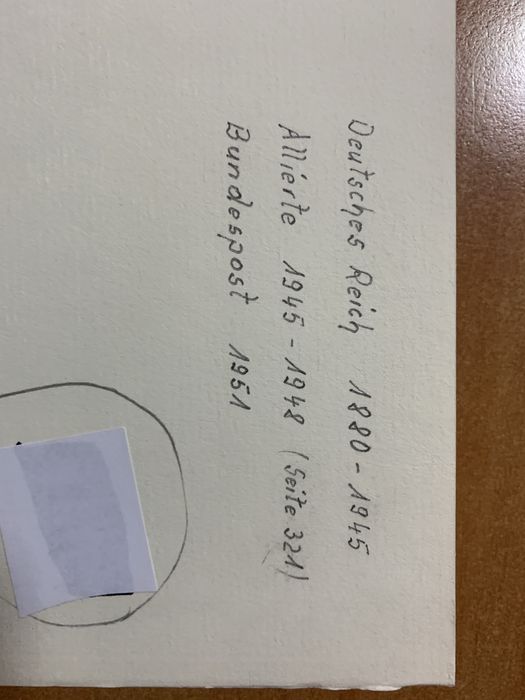 Deutsches Reich 1880-1945
Allierte 1945-1948 (Seite 321)
Bundespost 1951